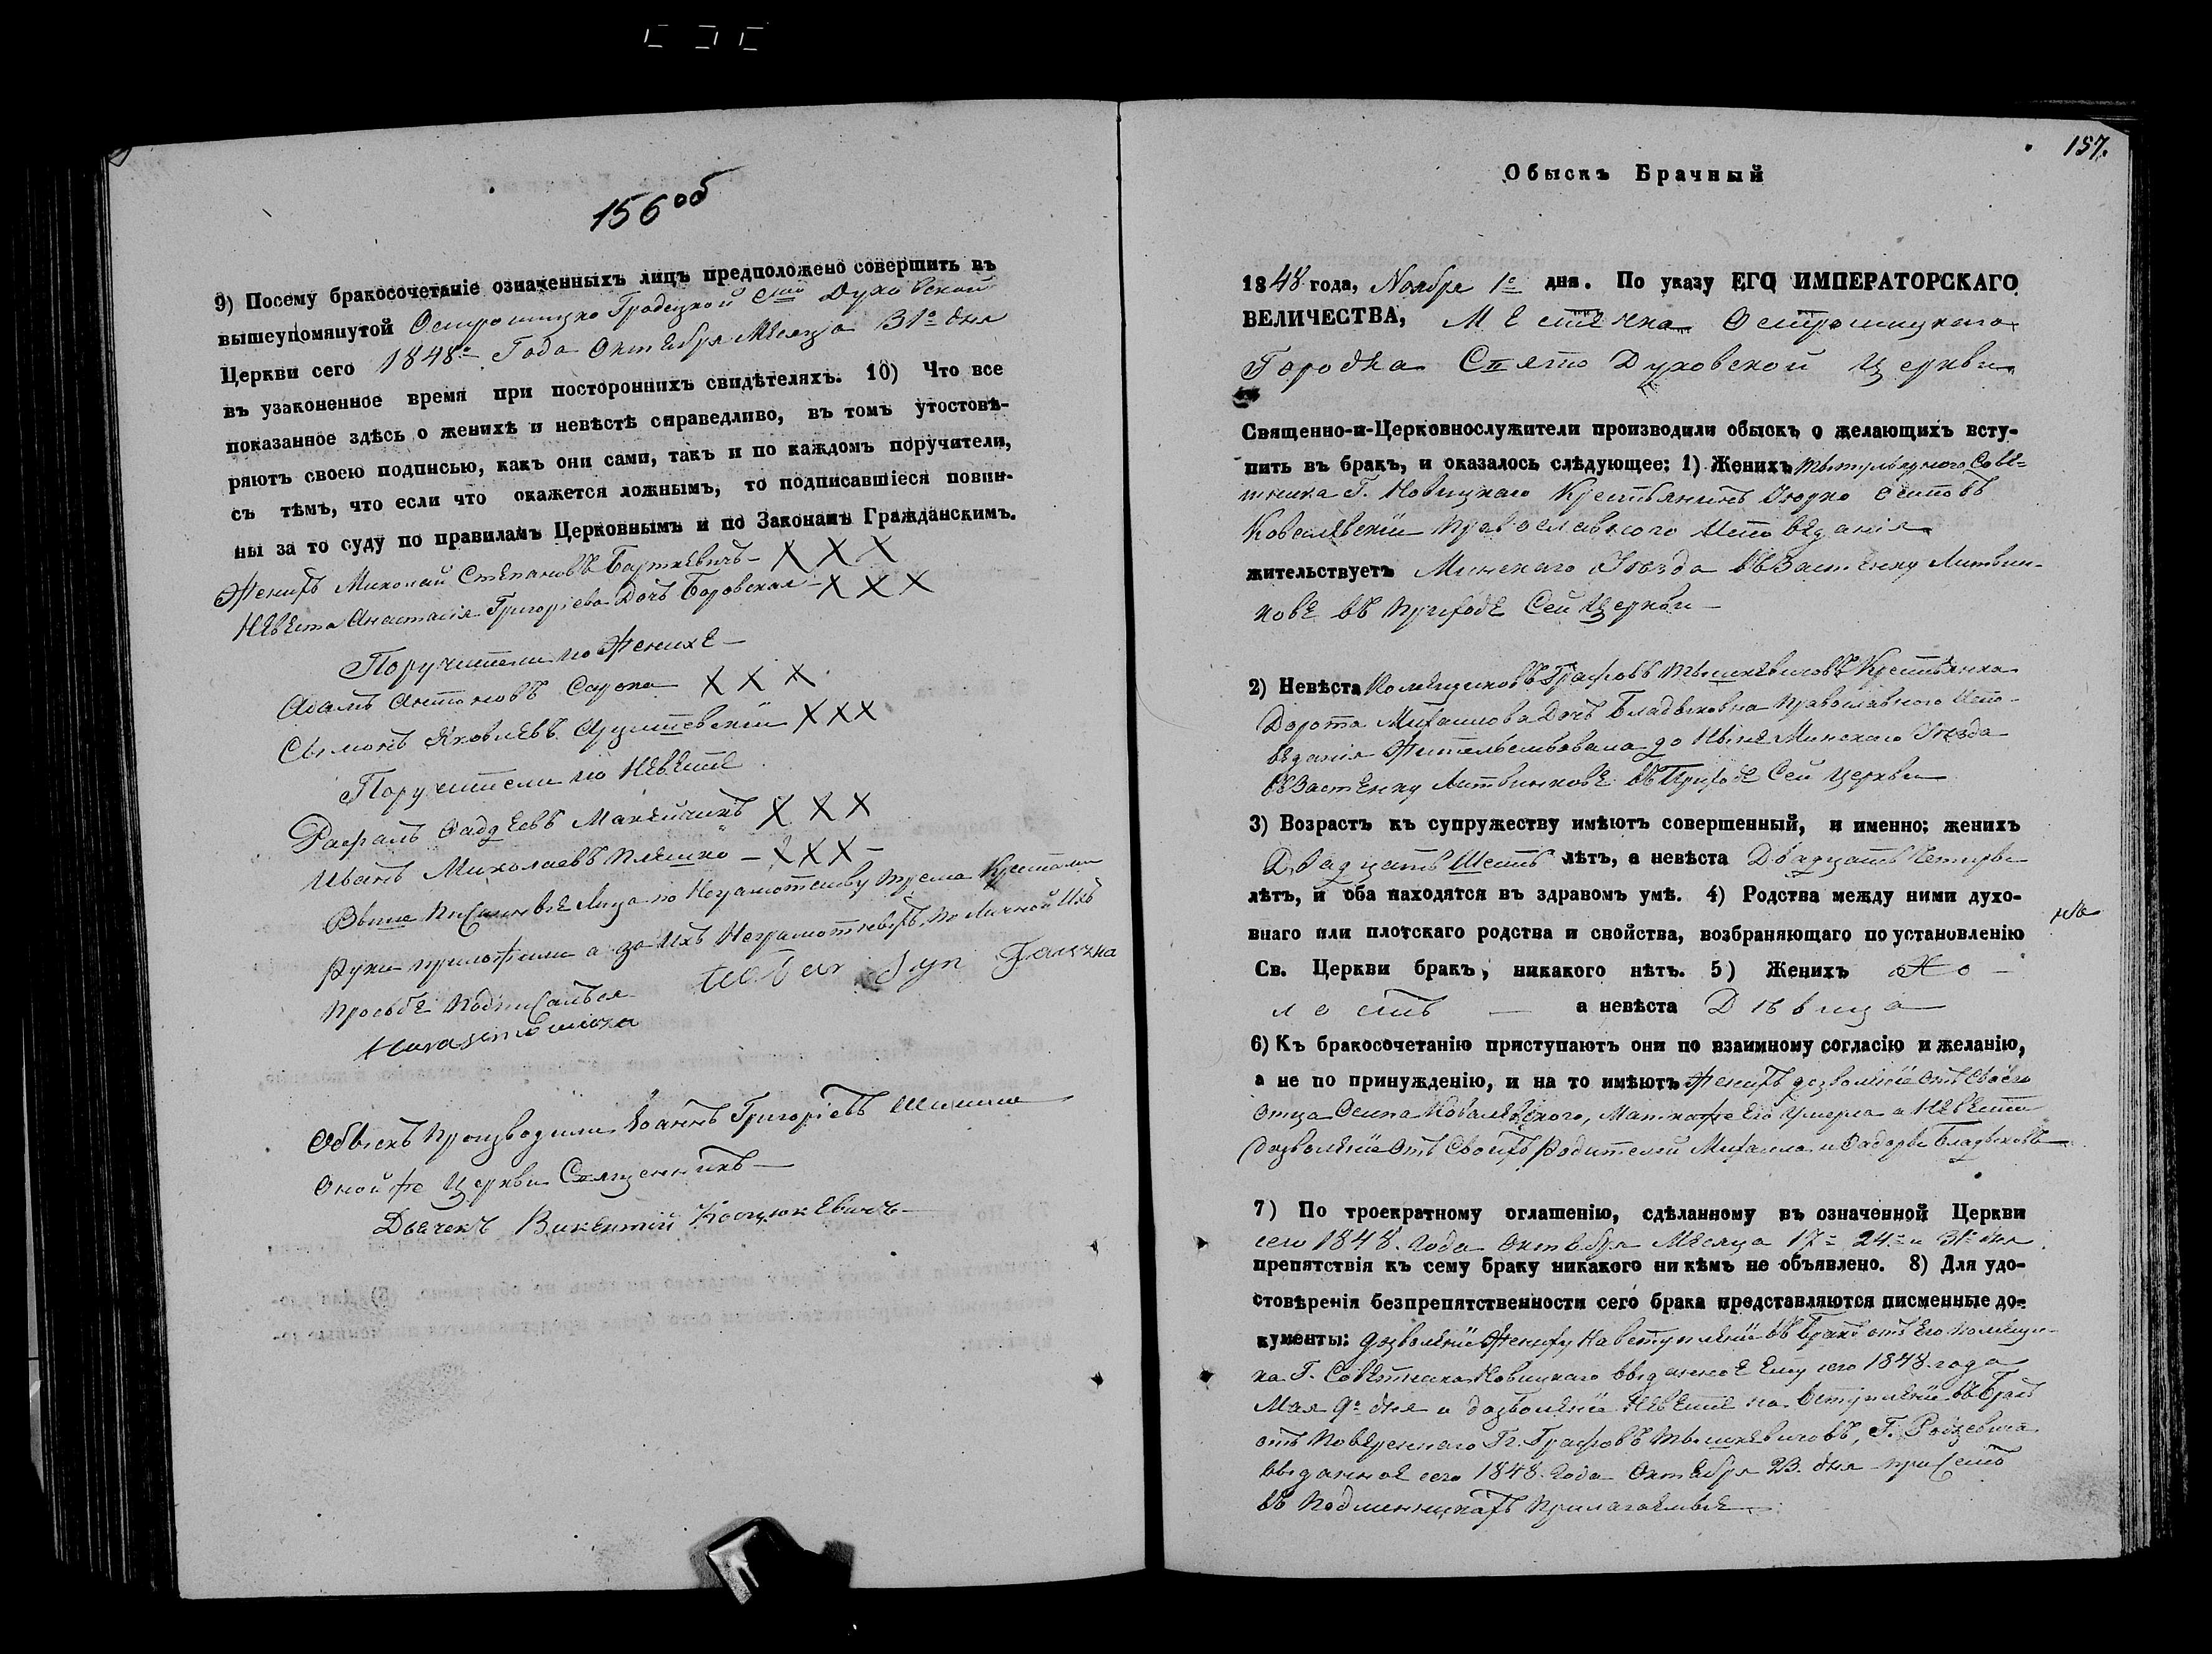 156 об
9) Посему бракосочетаніе означенныхъ лицъ предположено совершить въ
вышеупомянутой Острошицко Градецкой Свято Духовской
Церкви сего 1848го Года Октября Месяца 31го дня
въ узаконенное время при постороннихъ свидѣтеляхъ. 10) Что все
показанное здѣсь о женихѣ и невѣстѣ справедливо, въ томъ утостовѣ-
ряютъ своею подписью, какъ они сами, такъ и по каждомъ поручители,
съ тѣмъ, что если что окажется ложнымъ, то подписавшіеся повин-
ны за то суду по правиламъ Церковнымъ и по Законамъ Гражданскимъ.
Женихъ Миколай Степановъ Барткевичъ - X X X
Невеста Анастасія Григоріева Дочь Боровская - X X X
Поручители по Женихе -
Адамъ Антоновъ X X X
Сымонъ Яковлевъ X X X
Поручители по Невесте
Рафалъ Фадеевъ Макейчикъ X X X
Иванъ Миколаевъ Пляшко - X X X -
Выше Писанные Лица по Неграмотству трема Крестами
Руки приложили а за Ихъ Неграмотныхъ по Личной Ихъ
Прозбе Подписался
Обыскъ Производили Іоаннъ Григоріевъ
Оной же Церкви Священникъ -
Дьячекъ Викентій
157.
Обыскъ Брачный
1848 года, Ноября 1го дня. По указу ЕГО ИМПЕРАТОРСКАГО
ВЕЛИЧЕСТВА, Местечка Острошицкаго
Городка Свято Духовской Церкви
Священно-и-Церковнослужители производили обыскъ о желающихъ всту-
пить въ бракъ, и оказалось слѣдующее: 1) Женихъ Титулярного Сове=
тника Г. Новицкаго Крестьянинъ Юрко Осиповъ
Ковалевскій Православного Исповеданія
жительствуетъ Минскаго Уезда въ Застенку Литвин-
кове въ Приходе Сей Церкви -
2) Невѣста Помещиковъ Графовъ Тышкевичовъ Крестьянка
Дорота Михайлова Дочь Бладыковна Православного Испо-
веданія Жительствовала до Ныне Минскаго Уезда
въ Застенку Литвинкове въ Приходе Сей Церкви
3) Возрастъ къ супружеству имѣютъ совершенный, и именно: женихъ
Двадцать Шесть лѣтъ, а невѣста Двадцать Четыре
лѣтъ, и оба находятся въ здравомъ умѣ. 4) Родства между ними духо-
внаго или плотскаго родства и свойства, возбраняющаго по установленію
Св. Церкви бракъ, никакого нѣтъ. 5) Женихъ Хо-
лостъ - а невѣста Дѣвица
6) Къ бракосочетанію приступаютъ они по взаимному согласію и желанію,
а не по принужденію, и на то имѣютъ Женихъ дозволеніе отъ своего
отца Осипа Ковалевского, Матка же Его Умерла а Невеста
дозволеніе отъ Своихъ Родителей Михаила и Бладыковъ
7) По троекратному оглашенію, сдѣланному въ означенной Церкви
сего 1848. Года Октября Месяца 17го 24го и 31го дня
препятствія къ сему браку никакого ни кѣмъ не объявлено. 8) Для удо-
стовѣренія безпрепятственности сего брака представляются писменные до-
кументы: дозволеніе Жениху На вступленіе въ Бракъ отъ Его помещи-
ка Г. Советника Новицкаго выданное Ему сего 1848. года
Мая 9го дня и дозволеніе Невесте на вступленіе въ Бракъ
отъ поверенного Гг. Графовъ Тышкевичовъ, Г.
выданное сего 1848. Года Октября 23. дня при семъ
въ Подлинникахъ Прилагаемые